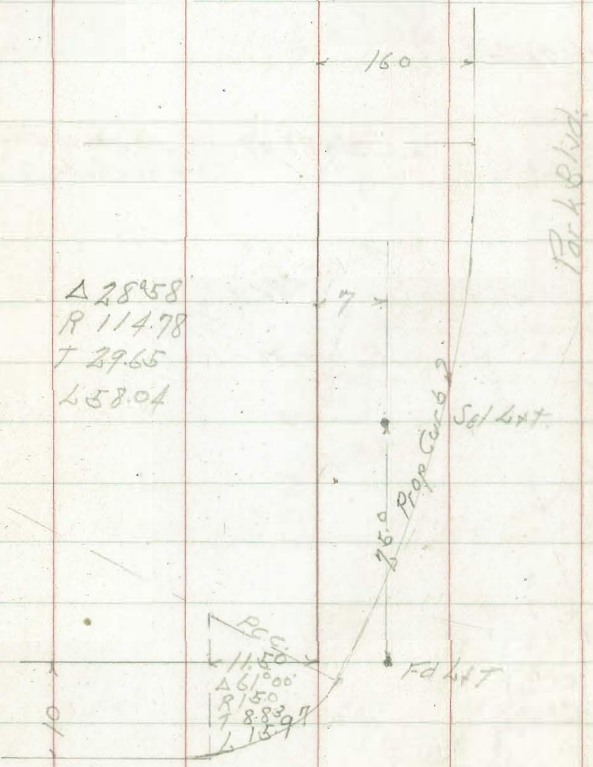 160
Park Blvd.
Δ 28°58
R 114.78
T 29.65
L 58.04
7
Set L+T
Prop Curb
75.0
P.C.C.
11.50
Δ 61°00'
R 15.0
T 8.83
L 15.97
Fd L+T
10